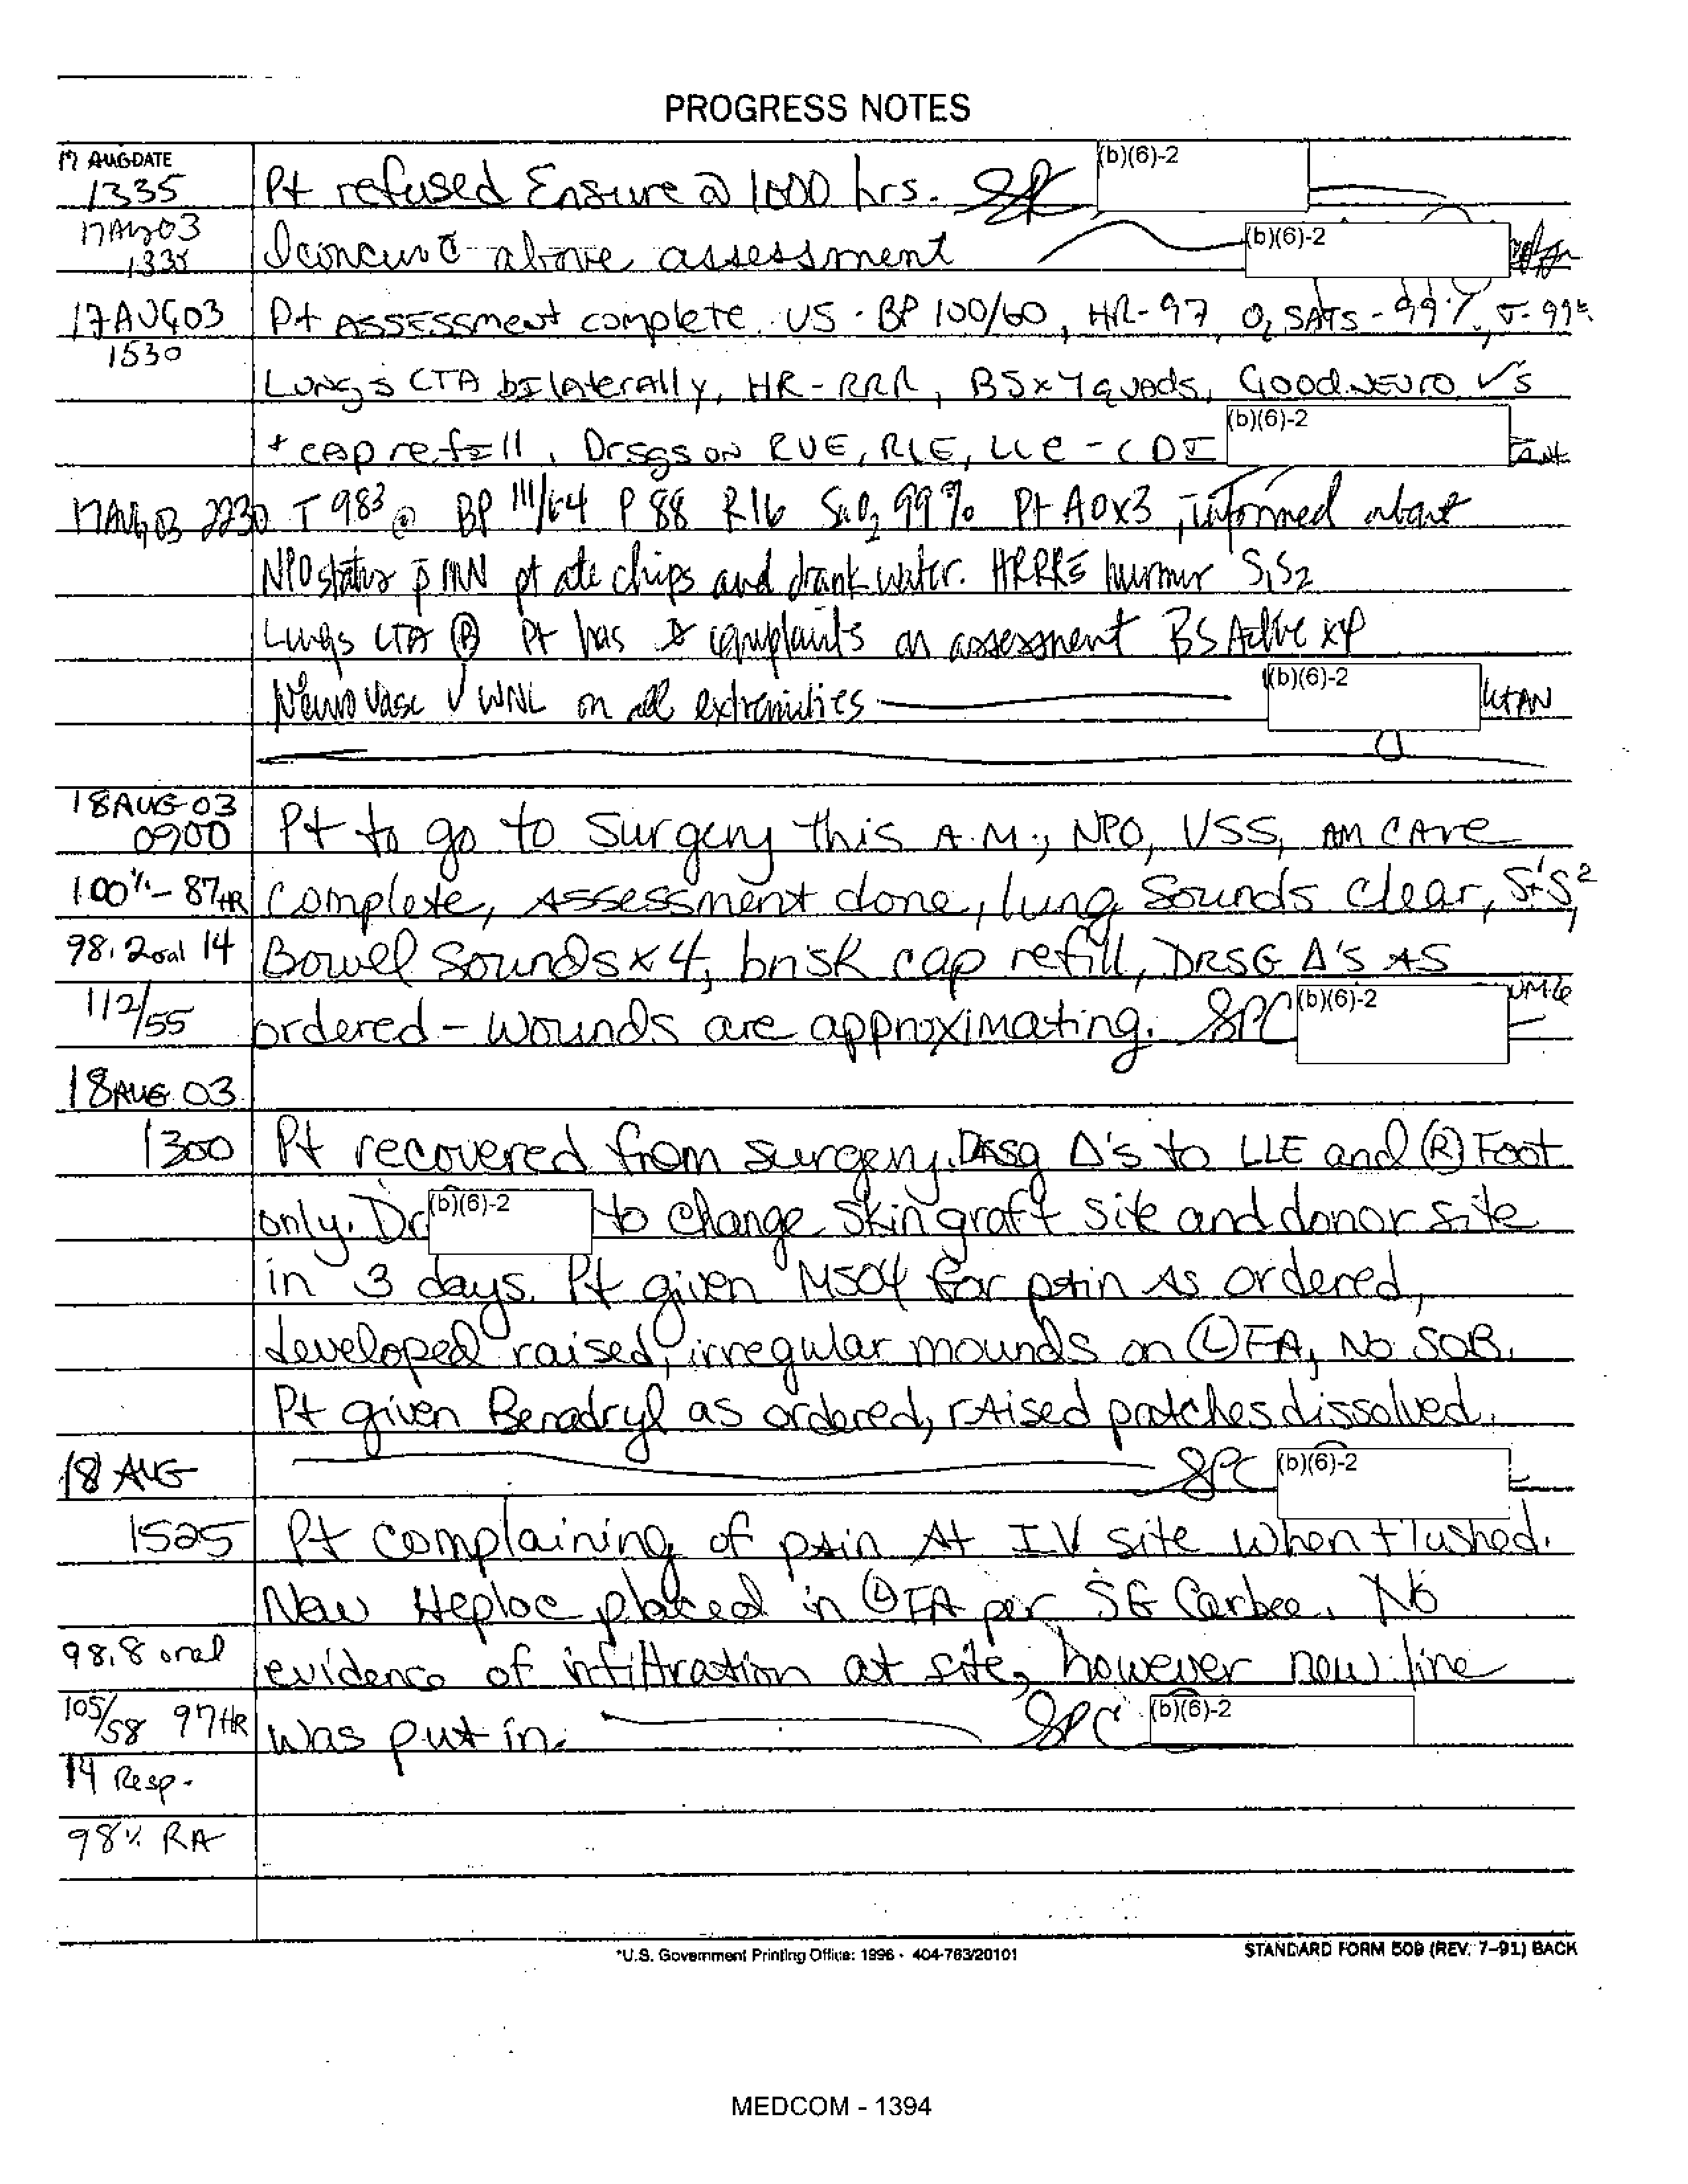 PROGRESS NOTES
17 AUG DATE
1335 Pt refused Ensure @ 1000 hrs. SPC (b)(6)-2
17 AUG 03
1335 I concur c̄ above assessment (b)(6)-2
17 AUG 03 Pt ASSESSment complete. VS - BP 100/60, HR-97 O2 SATS - 99%, T-99
1530
LUNGS CTA bILATERALLY, HR-RRR, BSx4 quads, Good NEURO √'s
+ cap refill, Drsgs on RUE, RLE, LLE - CDI (b)(6)-2
17 AUG 03 2230 T 98³ @ BP 111/64 P 88 R16 SaO2 99% Pt AOx3, informed about
NPO status p̄ MN pt ate chips and drank water. HRRR murmur S1S2
Lungs CTA Ⓑ Pt has complaints on assessment BS Active x4
Neuro Vasc √ WNL on all extremities (b)(6)-2
18 AUG 03
0900 Pt to go to surgery this A.M., NPO, VSS, AM CAre
100%- 87 HR complete, Assessment done, lung sounds clear, S1S2,
98.2 oral 14 Bowel sounds x 4, brisk cap refill, DRSG Δ's AS
112/55 ordered - wounds are approximating. SPC (b)(6)-2
18 AUG 03
1300 Pt recovered from surgery. Drsg Δ's to LLE and Ⓡ Foot
only. Dr (b)(6)-2 to change skin graft site and donor site
in 3 days. Pt given MSO4 for pain As ordered,
developed raised, irregular mounds on Ⓛ FA, No SOB.
Pt given Benadryl as ordered, raised patches dissolved.
18 AUG SPC (b)(6)-2
1525 Pt complaining of pain At IV site when flushed.
New Heploc placed in Ⓛ FA per SG Carbee. No
98.8 oral evidence of infiltration at site, however new line
105/58 97 HR was put in. SPC (b)(6)-2
14 Resp.
98% RA
*U.S. Government Printing Office: 1996 - 404-763/20101
STANDARD FORM 509 (REV. 7-91) BACK
MEDCOM - 1394